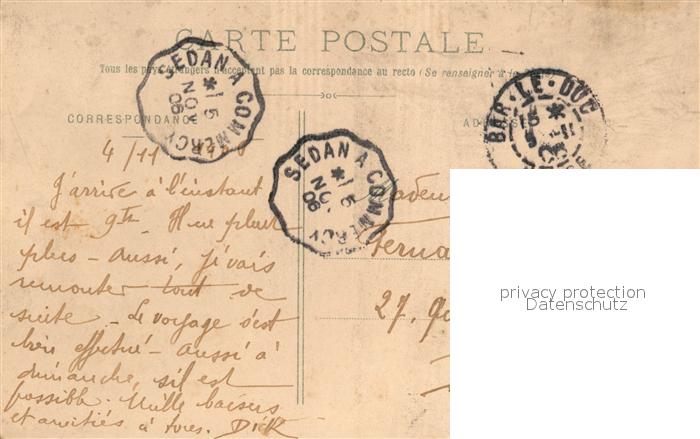 CARTE POSTALE
Tous les pays étrangers n'acceptent pas la correspondance au recto (Se renseigner à la
CORRESPONDANCE
ADRESSE
SEDAN A COMMERCY
* 5
NOV
06
SEDAN A COMMERCY
* 5
NO
06
BAR-LE-DUC
4/11
J'arrive à l'instant
il est 9h. Il ne pleut
plus - aussi, je vais
remonter tout de
suite - Le voyage s'est
bien effectué - aussi à
dimanche, s'il est
possible. Mille baisers
et amitiés à tous. Dick
Ferna
27,
privacy protection
Datenschutz